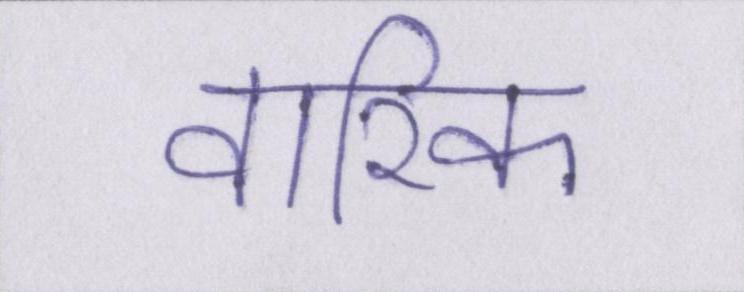 वारिक